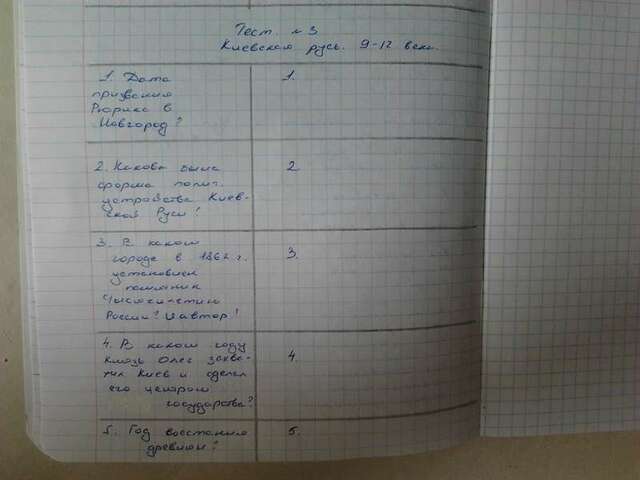 Тест №3
Киевская русь. 9-12 века.
1. Дата
призвания
Рюрика в
Новгород?
1.
2. Какова была
форма полит.
устройства Киев-
ской Руси?
2
3. В каком
городе в 1862 г.
установлен
памятник
Тысячелетию
России? И автор?
3.
4. В каком году
князь Олег захва-
тил Киев и сделал
его центром
государства?
4.
5. Год восстания
древлян?
5.